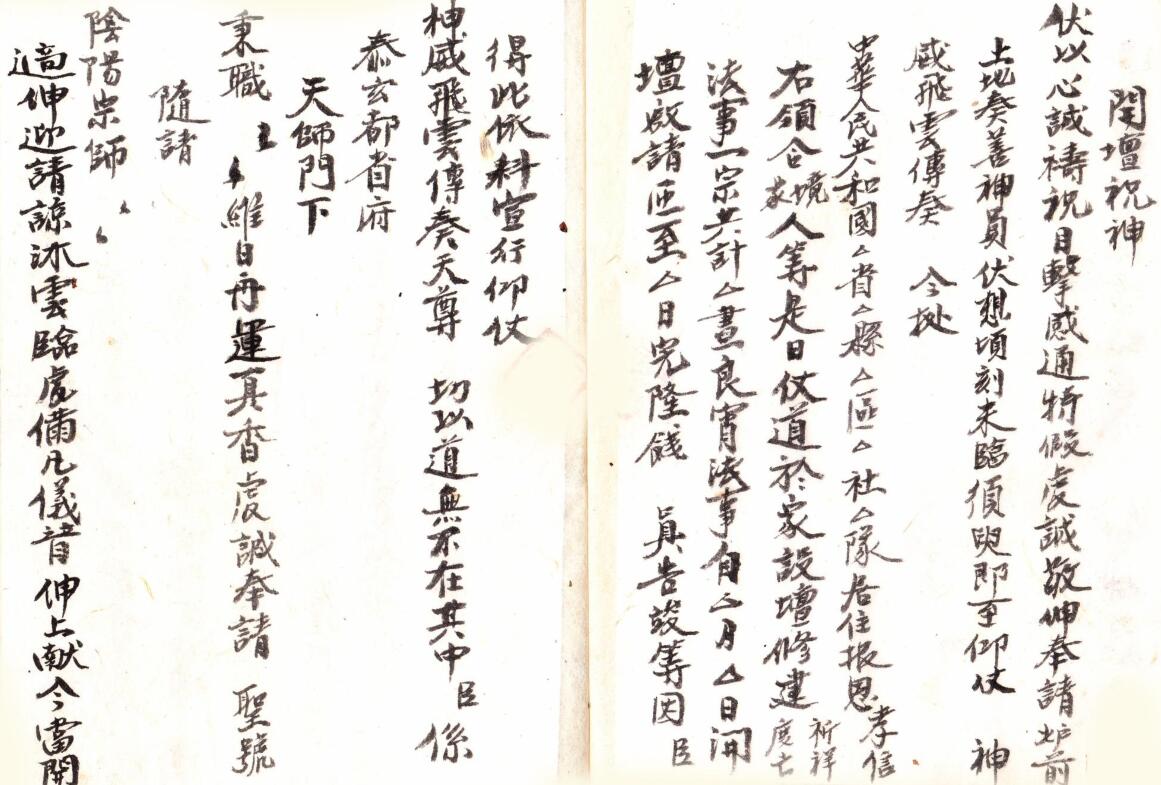 開壇祝神
伏以心誠禱祝目擊感通特假虔誠敬伸奉請炉前
土地奏善神員伏想頃刻來臨須臾即至仰仗　神
威飛雲傳奏　今據
中華人民共和國△省△縣△區△社△隊居住報恩孝信
右領合家境人等是日仗道於家設壇修建祈祥度亡
法事一宗共計△晝良宵法事自△月△日開
壇啟請匝至△日完隆餞　眞告發等因　臣
得此依科宣行仰仗
神威飛雲傳奏天尊　切以道無不在其中　臣係
泰玄都省府
天師門下
秉職　維日再運真香虔誠奉請　聖號
隨請
陰陽宗師
適伸迎請諒沐雲臨處備凡儀音伸上献今當開